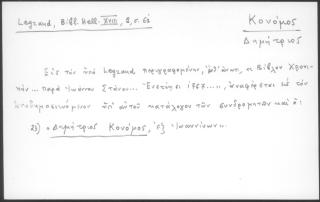 Legrand, Bibl. Hell. XVIII, 2, σ. 62
Κονόμος
Δημήτριος
Εἰς τὸν ὑπὸ Legrand περιγραφόμενον, ὡς Βίβλον Χρονι-
κὴν ... παρὰ Ἰωάννου Στάνου... Ἐνετίῃσι 1767....., ἀναφέρεται εἰς τὸν
δημοσιευόμενον ὑπ' αὐτοῦ κατάλογον τῶν συνδρομητῶν καὶ ὁ:
23) "Δημήτριος Κονόμος, ἐξ Ἰωαννίνων".